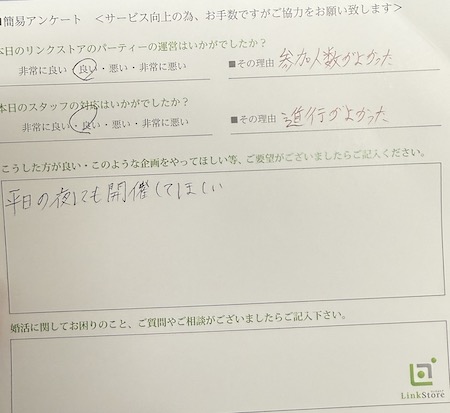 ■簡易アンケート <サービス向上の為、お手数ですがご協力をお願い致します>
本日のリンクストアのパーティーの運営はいかがでしたか？
非常に良い・良い・悪い・非常に悪い ■その理由 参加人数がよかった
本日のスタッフの対応はいかがでしたか？
非常に良い・良い・悪い・非常に悪い ■その理由 進行がよかった
こうした方が良い・このような企画をやってほしい等、ご要望がございましたらご記入ください。
平日の夜にも開催してほしい
婚活に関してお困りのこと、ご質問やご相談がございましたらご記入下さい。
LinkStore